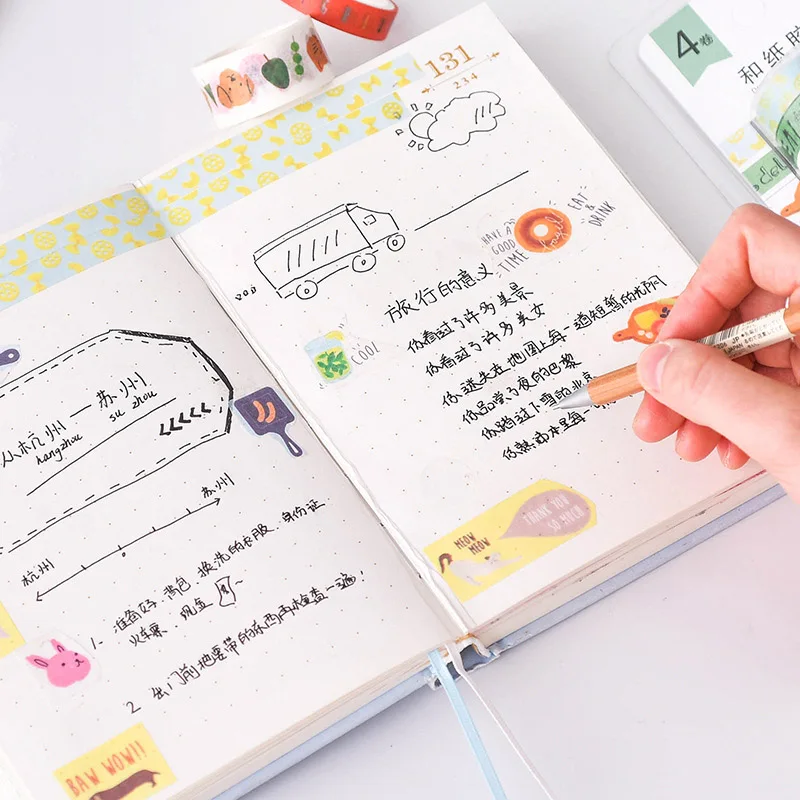 从杭州—苏州
hangzhou su zhou
苏州
杭州
1- 准备好、背包、换洗的衣服、身份证
火车票、现金
2 出门前把要带的东西再检查一遍!
BAW WOW!!
131
234
HAVE A
GOOD
TIME
EAT
&
DRINK
旅行的意义
你看过了许多美景
你看过了许多美女
你迷失在地图上每一道短暂的光阴
你品尝了夜的巴黎
你踏过下雪的北京
你熟记书本里每一
COOL
MEOW
MEOW
THANK YOU
SO MUCH
4卷
和纸胶